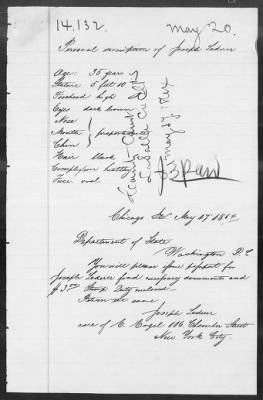 14,132.
May 20.
Personal description of Joseph Lederer
Age 35 years
Stature 5 feet 10
Forehead high
Eyes dark brown
Nose
Mouth } proportionate
Chin
Hair black
Complexion healthy
Face oval
May 27 1864
Chicago Ill May 17 1864
Department of State
Washington D.C.
You will please find passport for
Joseph Lederer find necessary documents and
$3.00 Stamp Duty inclosed.
Return the same
Joseph Lederer
care of C. Engel 186 Chamber Street
New York City.